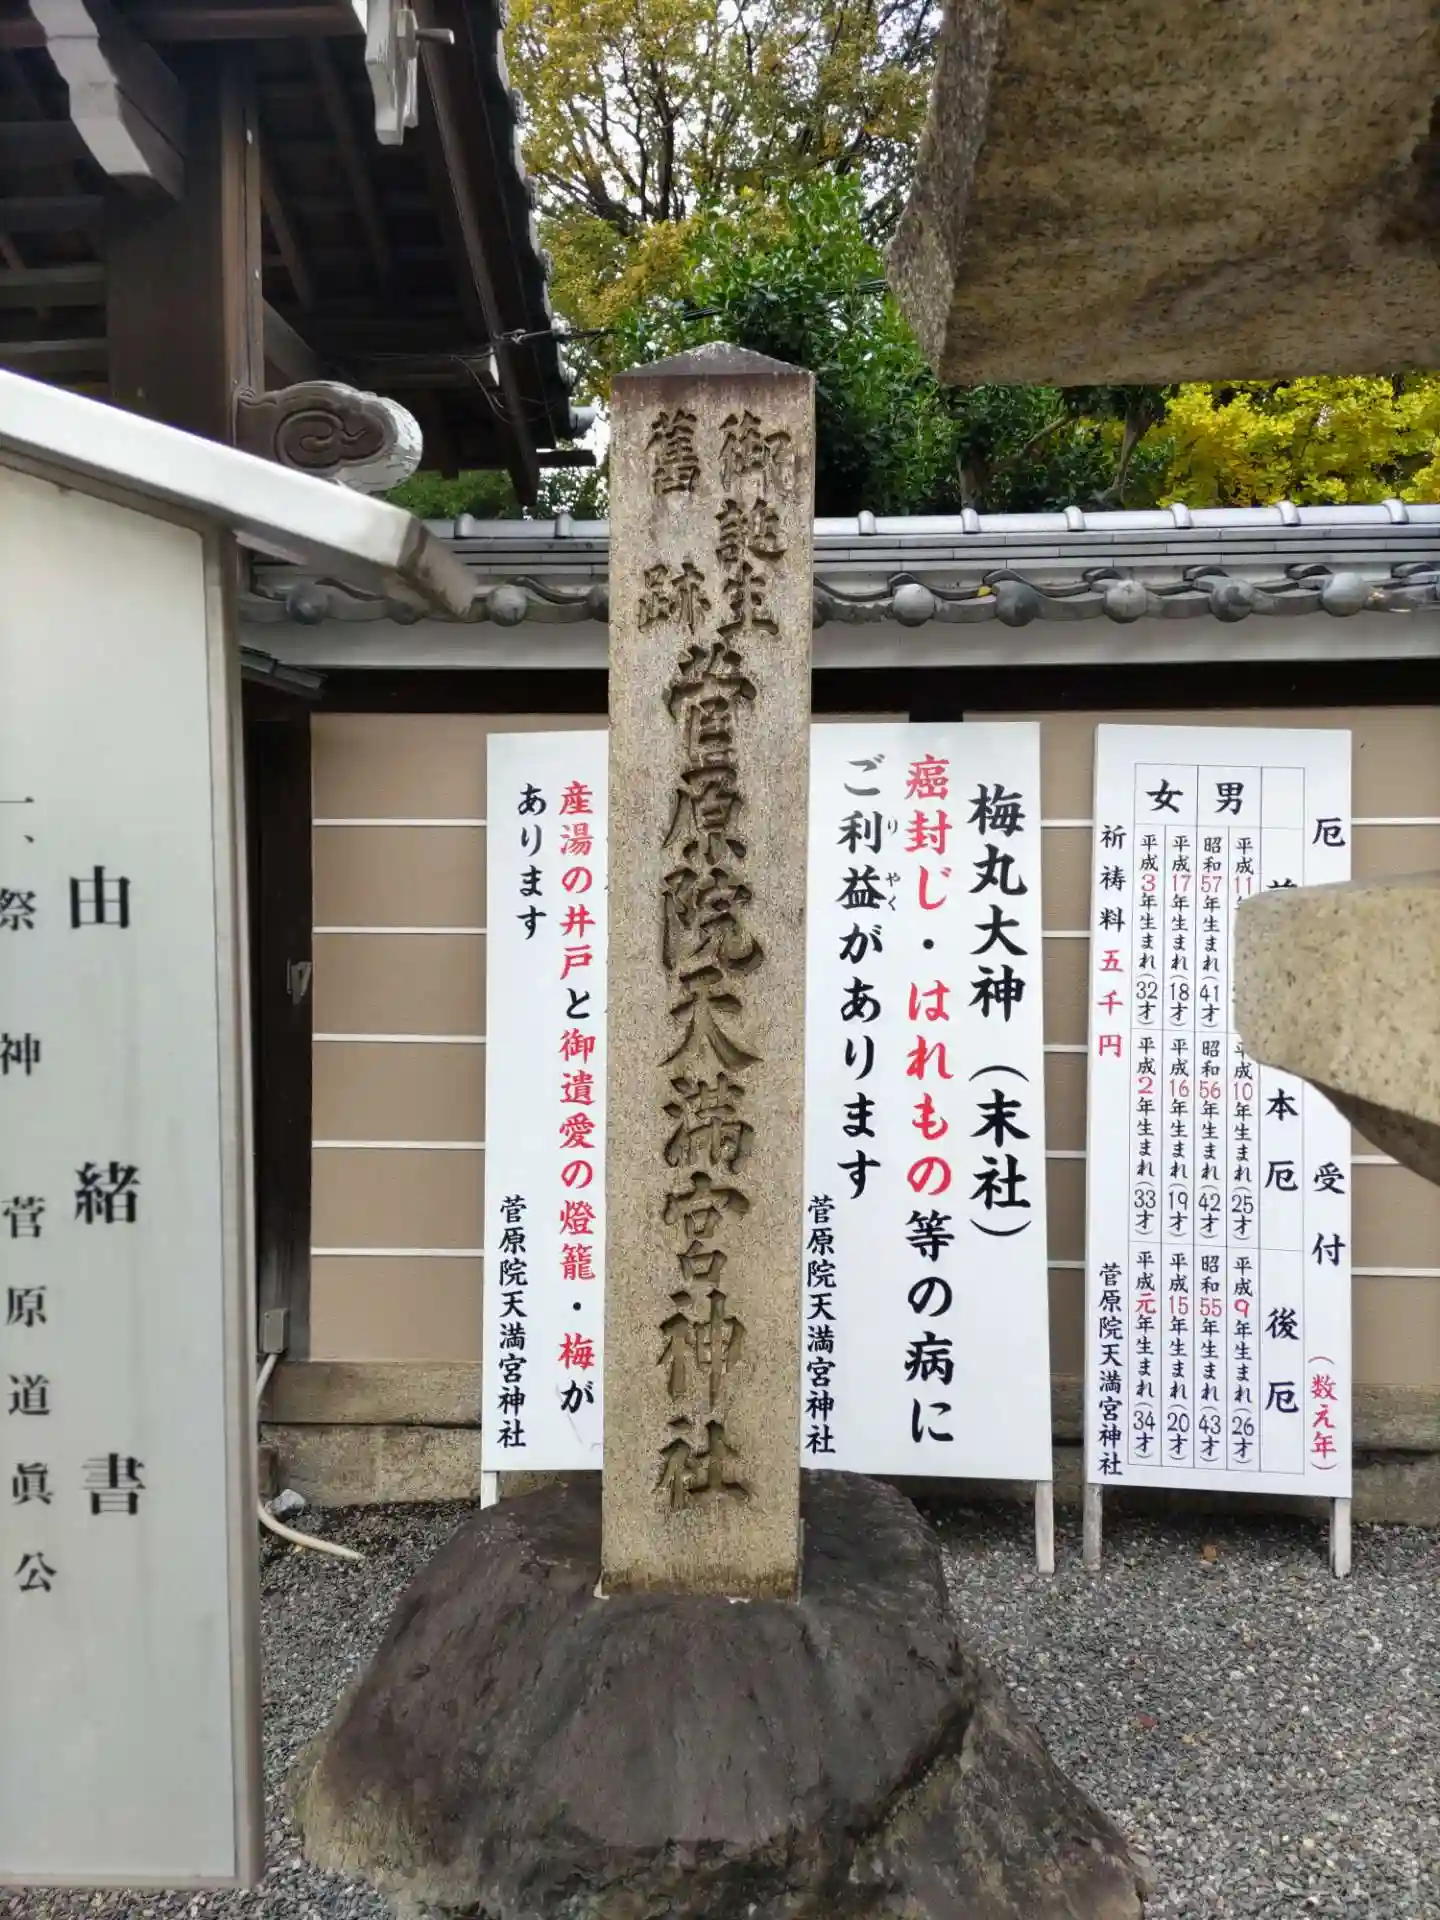 厄 受付(数え年)
本厄 後厄
男
平成11年
平成10年生まれ(25才)
平成9年生まれ(26才)
昭和57年生まれ(41才)
昭和56年生まれ(42才)
昭和55年生まれ(43才)
女
平成17年生まれ(18才)
平成16年生まれ(19才)
平成15年生まれ(20才)
平成3年生まれ(32才)
平成2年生まれ(33才)
平成元年生まれ(34才)
祈祷料五千円
菅原院天満宮神社
梅丸大神(末社)
癌封じ・はれもの等の病に
ご利益があります
りやく
菅原院天満宮神社
御誕生
舊跡
菅原院天満宮神社
産湯の井戸と御遺愛の燈籠・梅が
あります
菅原院天満宮神社
由緒書
一、祭神 菅原道眞公